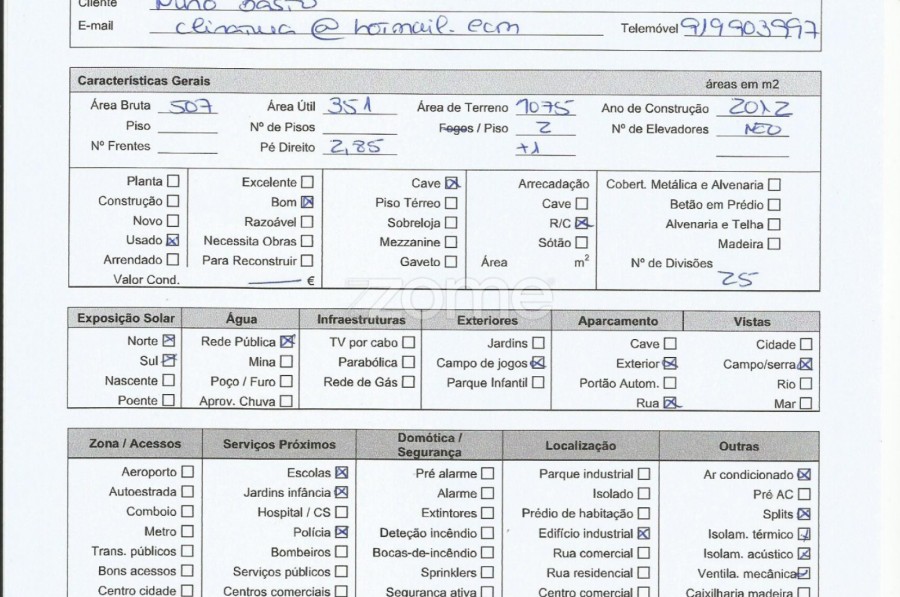 Cliente Nuno Basto
E-mail @ hotmail. com Telemóvel 919903997
Características Gerais áreas em m2
Área Bruta 507 Área Útil 351 Área de Terreno 1075 Ano de Construção 2012
Piso Nº de Pisos Fogos / Piso 2 Nº de Elevadores NEO
Nº Frentes Pé Direito 2,85 +1
Planta Excelente Cave Arrecadação Cobert. Metálica e Alvenaria
Construção Bom Piso Térreo Cave Betão em Prédio
Novo Razoável Sobreloja R/C Alvenaria e Telha
Usado Necessita Obras Mezzanine Sótão Madeira
Arrendado Para Reconstruir Gaveto Área m² Nº de Divisões
Valor Cond. € 25
zome
Exposição Solar Água Infraestruturas Exteriores Aparcamento Vistas
Norte Rede Pública TV por cabo Jardins Cave Cidade
Sul Mina Parabólica Campo de jogos Exterior Campo/serra
Nascente Poço / Furo Rede de Gás Parque Infantil Portão Autom. Rio
Poente Aprov. Chuva Rua Mar
Zona / Acessos Serviços Próximos Domótica / Segurança Localização Outras
Aeroporto Escolas Pré alarme Parque industrial Ar condicionado
Autoestrada Jardins infância Alarme Isolado Pré AC
Comboio Hospital / CS Extintores Prédio de habitação Splits
Metro Polícia Deteção incêndio Edifício industrial Isolam. térmico
Trans. públicos Bombeiros Bocas-de-incêndio Rua comercial Isolam. acústico
Bons acessos Serviços públicos Sprinklers Rua residencial Ventila. mecânica
Centro cidade Centros comerciais Segurança ativa Centro comercial Caixilharia madeira